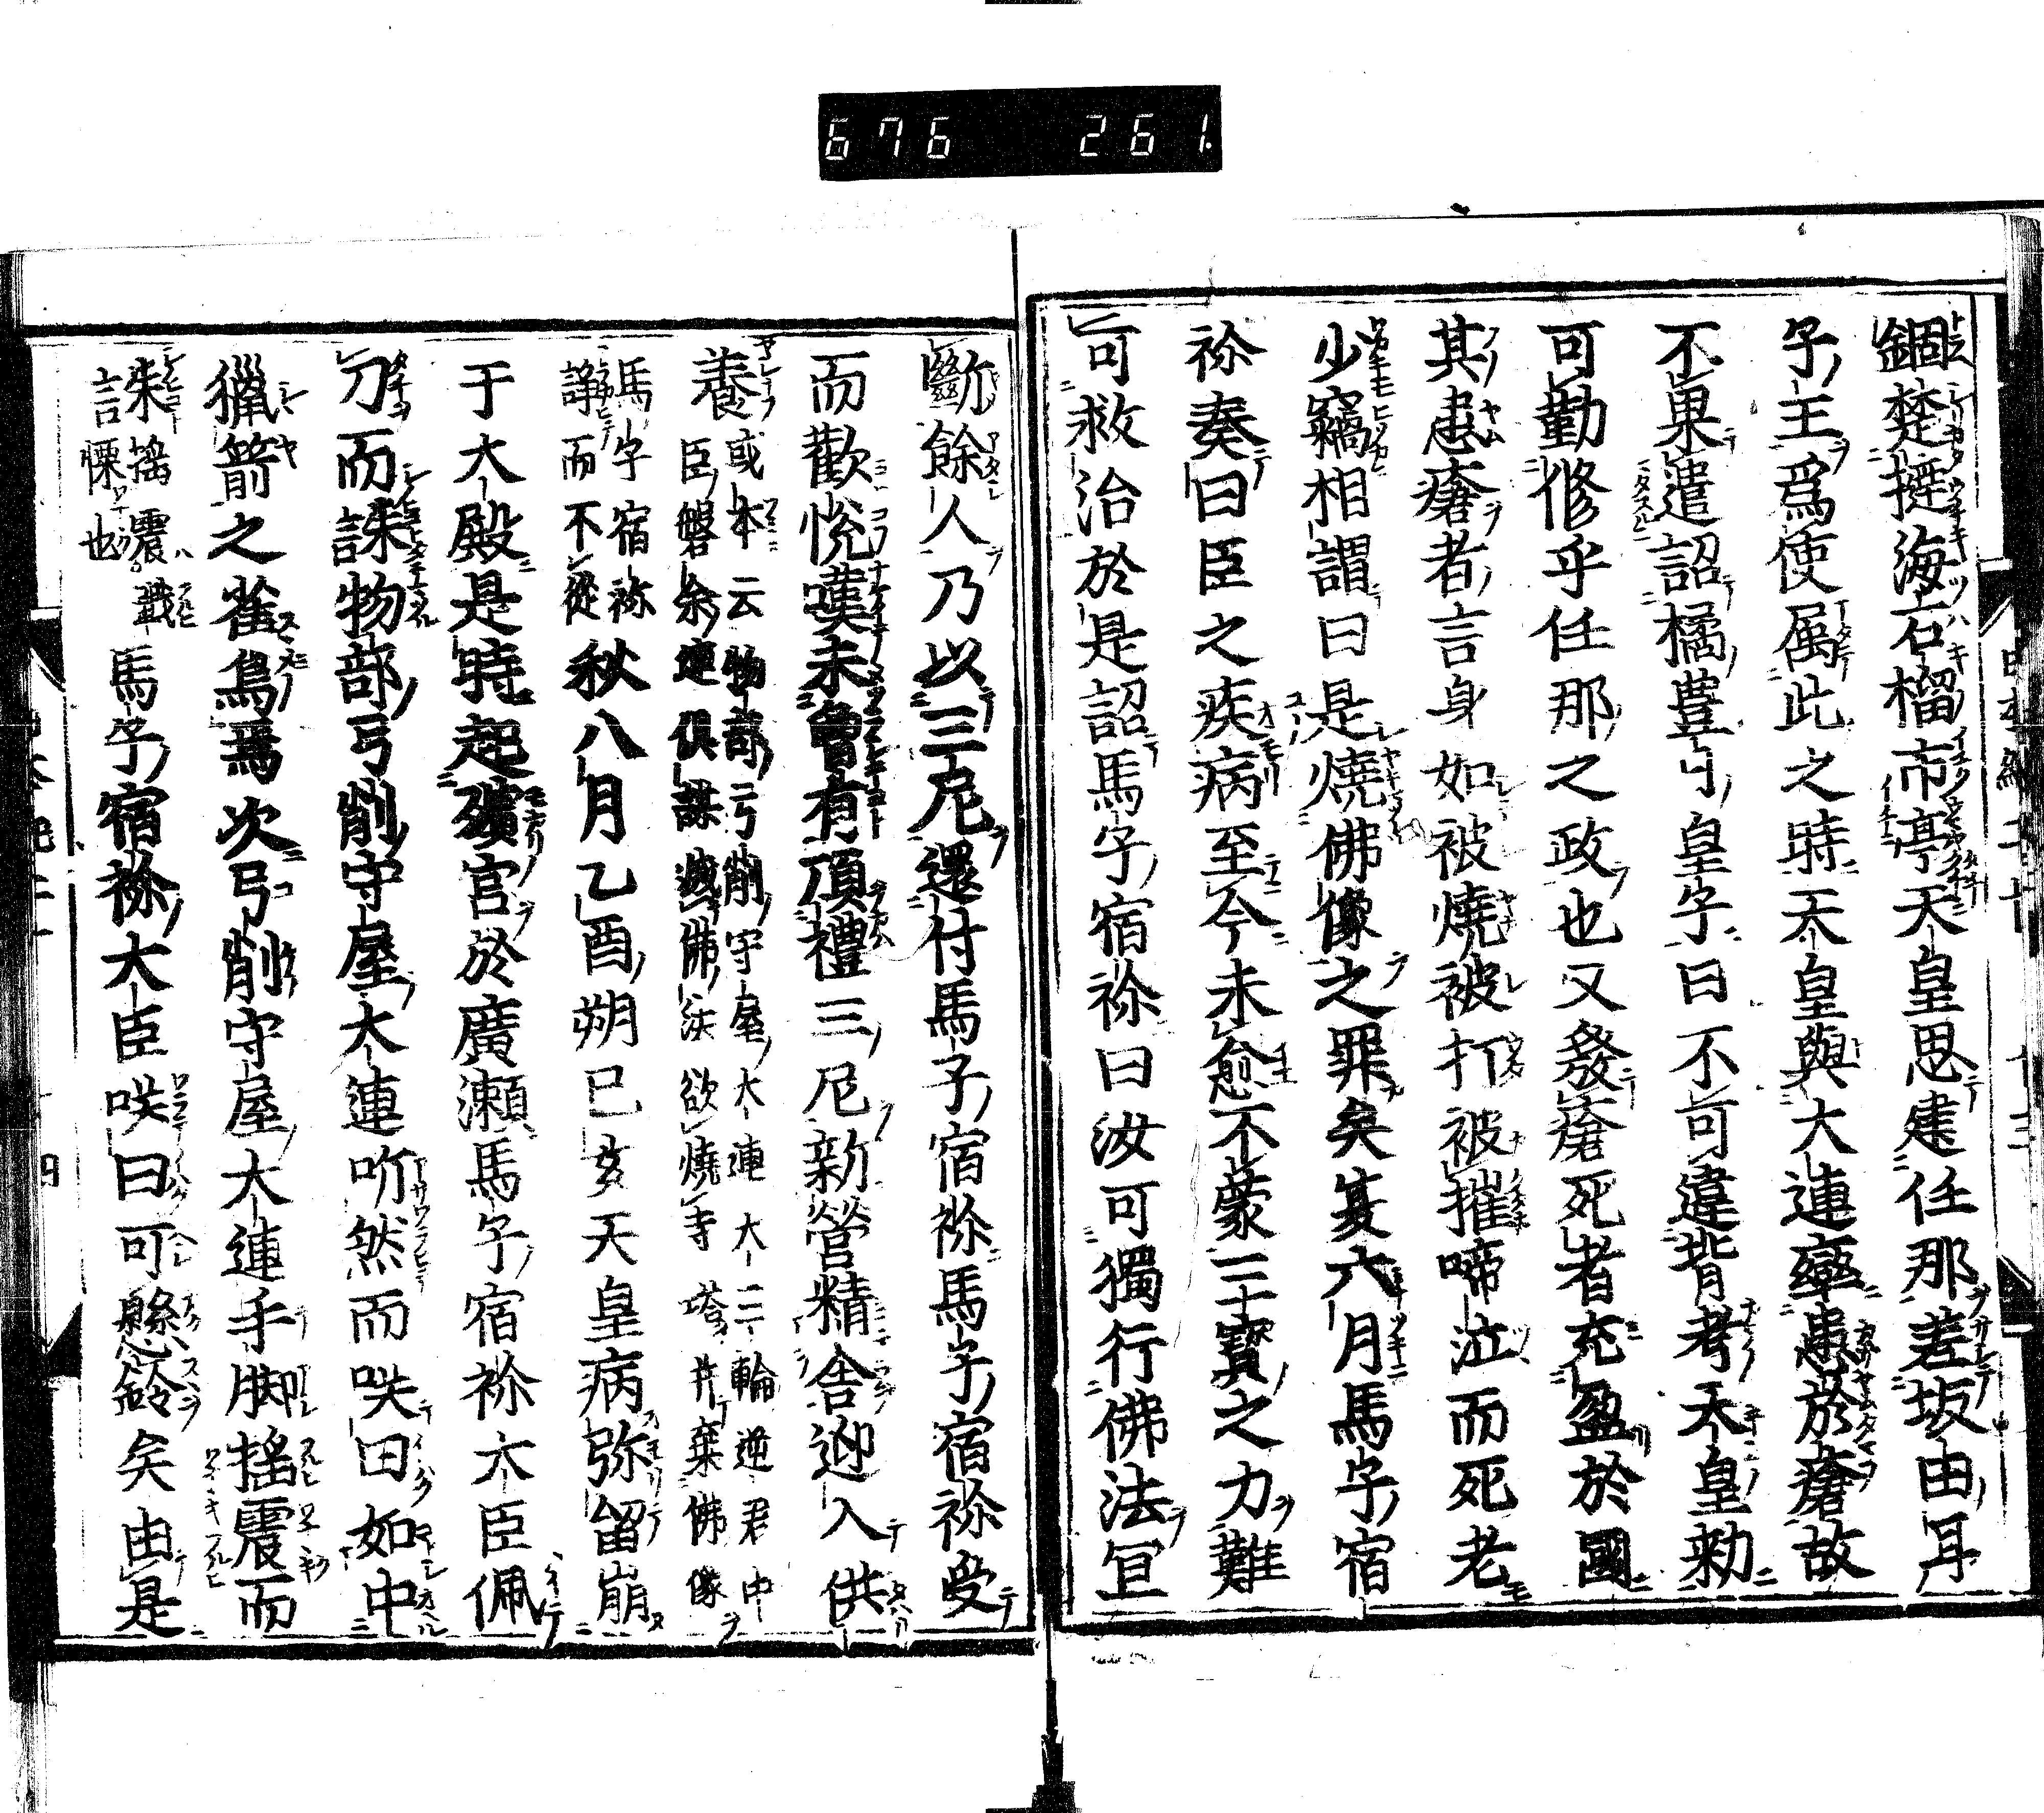 676 261.
錮楚撻海石榴市亭天皇思建任那差坂田耳
子王爲使属此之時天皇與大連卒患於瘡故
不果遣詔橘豊日皇子曰不可違背考天皇勅
可勤修乎任那之政也又發瘡死者充盈於國
其患瘡者言身如被燒被打被摧啼泣而死老
少竊相謂曰是燒佛像之罪矣夏六月馬子宿
祢奏曰臣之疾病至今未愈不蒙三寶之力難
可救治於是詔馬子宿祢曰汝可獨行佛法宜
斷餘人乃以三尼還付馬子宿祢馬子宿祢受
而歡悅嘆未曾有頂禮三尼新營精舎迎入供
養
或本云物部弓削守屋大連大三輪逆君中
臣磐余連俱謀滅佛法欲燒寺塔并棄佛像
馬子宿祢
諍而不從
秋八月乙酉朔己亥天皇病弥留崩
于大殿是時起殯宮於廣瀬馬子宿祢大臣佩
刀而誄物部弓削守屋大連听然而咲曰如中
獵箭之雀鳥焉次弓削守屋大連手脚搖震而
誄
搖震戰
慄也
馬子宿祢大臣咲曰可懸鈴矣由是